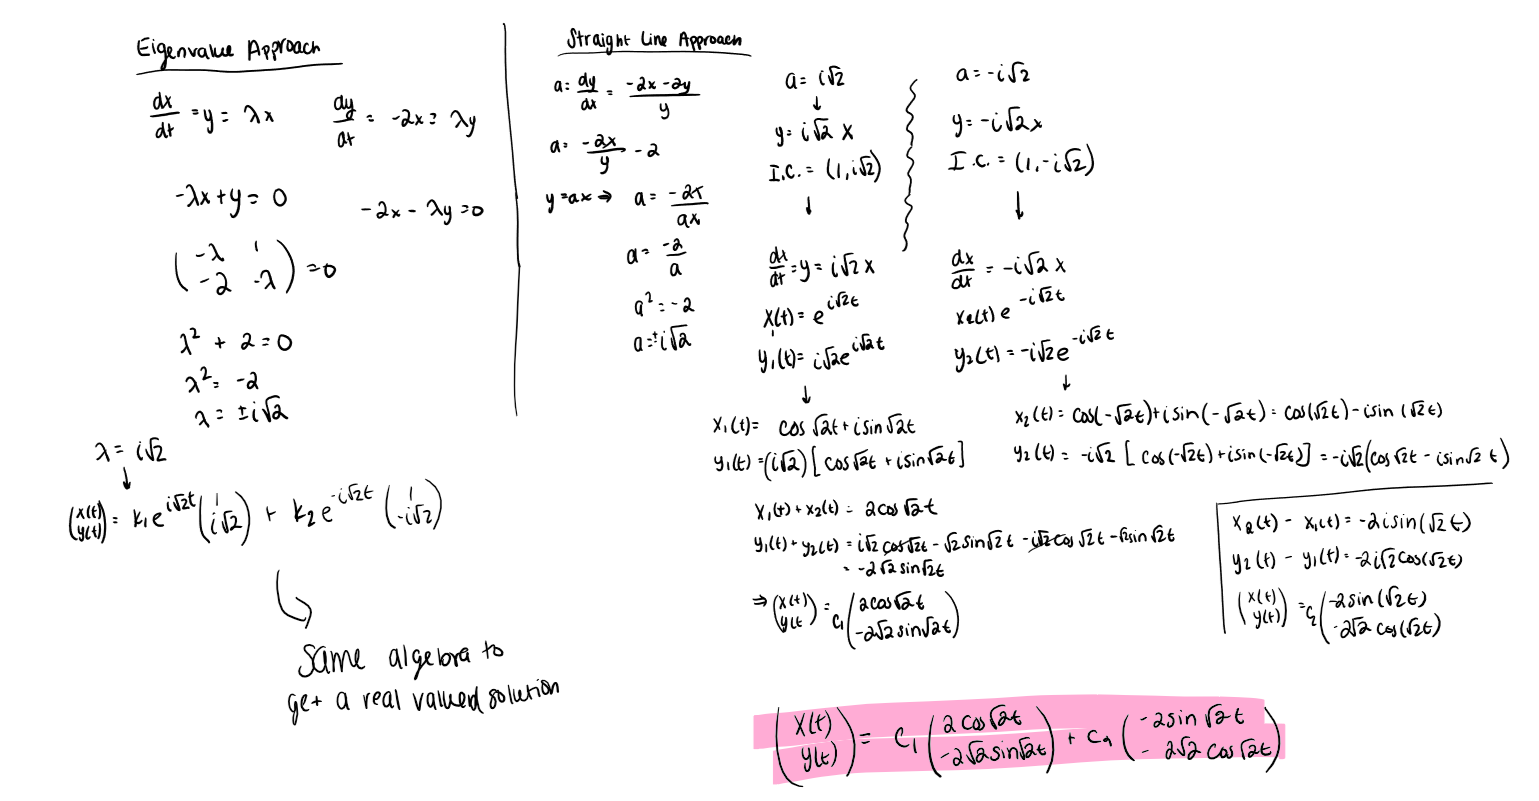 Eigenvalue Approach
dx/dt = y = λx    dy/dt = -2x = λy
-λx + y = 0    -2x - λy = 0
(-λ 1
-2 -λ) = 0
λ² + 2 = 0
λ² = -2
λ = ±i√2
λ = i√2
↓
(x(t) y(t)) = k₁e^{i√2t} (1 i√2) + k₂e^{-i√2t} (1 -i√2)
Same algebra to
get a real valued solution
Straight Line Approach
a = dy/dx = (-2x-2y)/y
a = -2x/y - 2
y = ax → a = -2x/ax
a = -2/a
a² = -2
a = ±i√2
a = i√2
↓
y = i√2 x
I.C. = (1, i√2)
↓
dx/dt = y = i√2 x
x₁(t) = e^{i√2t}
y₁(t) = i√2e^{i√2t}
↓
x₁(t) = cos√2t + isin√2t
y₁(t) = (i√2)[cos√2t + isin√2t]
a = -i√2
y = -i√2x
I.C. = (1, -i√2)
↓
dx/dt = -i√2 x
x₂(t) e^{-i√2t}
y₂(t) = -i√2e^{-i√2t}
↓
x₂(t) = cos(-√2t) + isin(-√2t) = cos(√2t) - isin(√2t)
y₂(t) = -i√2 [cos(-√2t) + isin(-√2t)] = -i√2(cos√2t - isin√2t)
x₁(t) + x₂(t) = 2cos√2t
y₁(t) + y₂(t) = i√2cos√2t - √2sin√2t - i√2cos√2t - √2sin√2t
= -2√2sin√2t
⇒ (x(t) y(t) = c₁(2cos√2t -2√2sin√2t)
x₂(t) - x₁(t) = -2isin(√2t)
y₂(t) - y₁(t) = -2i√2cos(√2t)
(x(t) y(t)) = c₂(-2sin(√2t) -2√2cos(√2t))
(x(t) y(t)) = c₁(2cos√2t -2√2sin√2t) + c₂(-2sin√2t -2√2cos√2t)